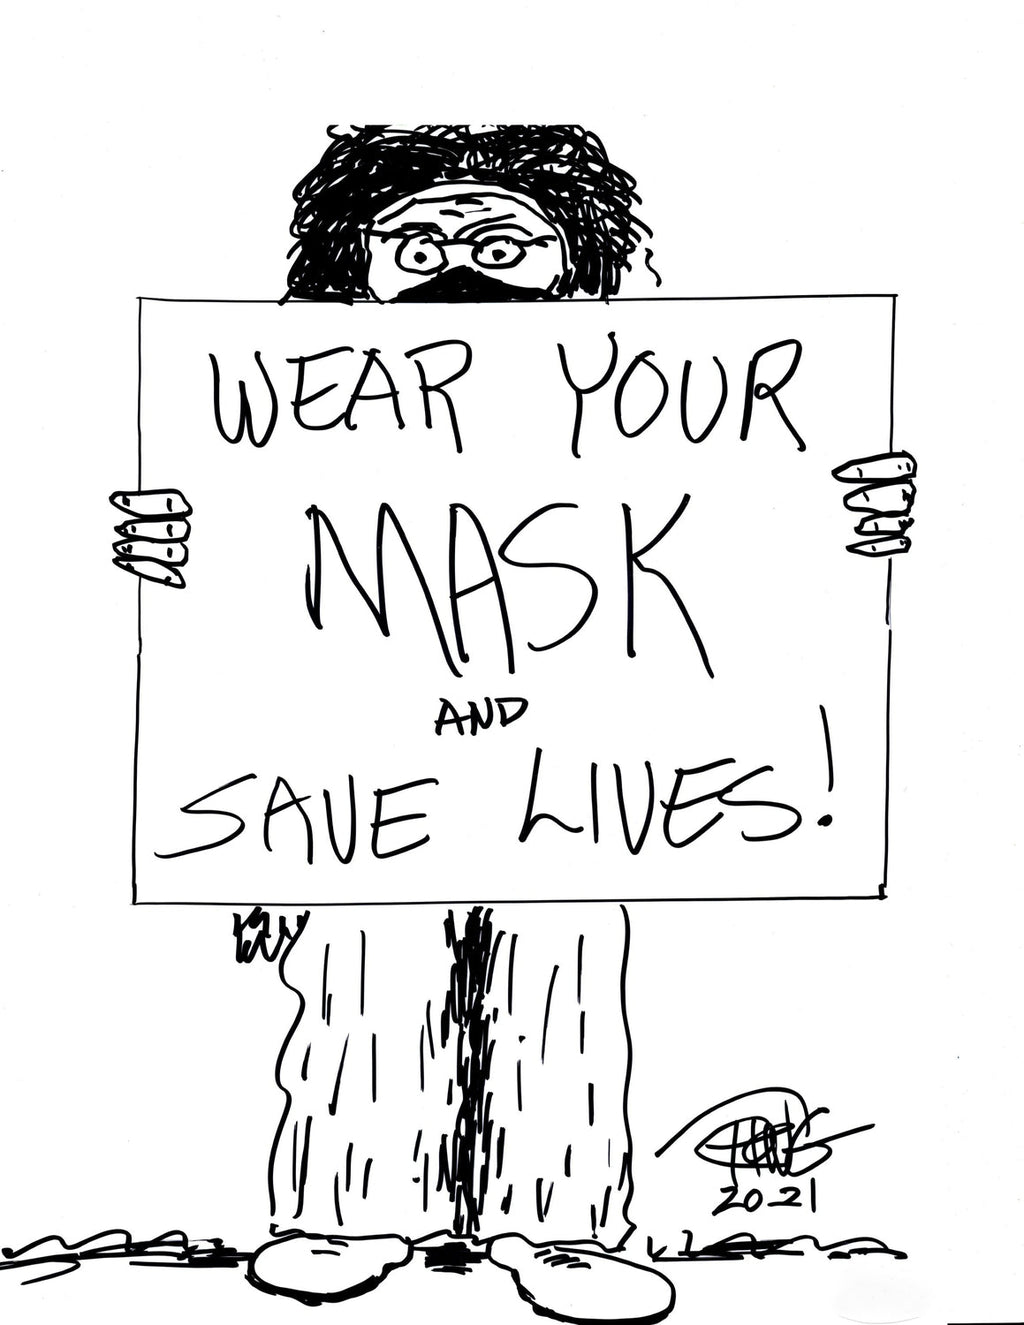 WEAR YOUR
MASK
AND
SAVE LIVES!
2021